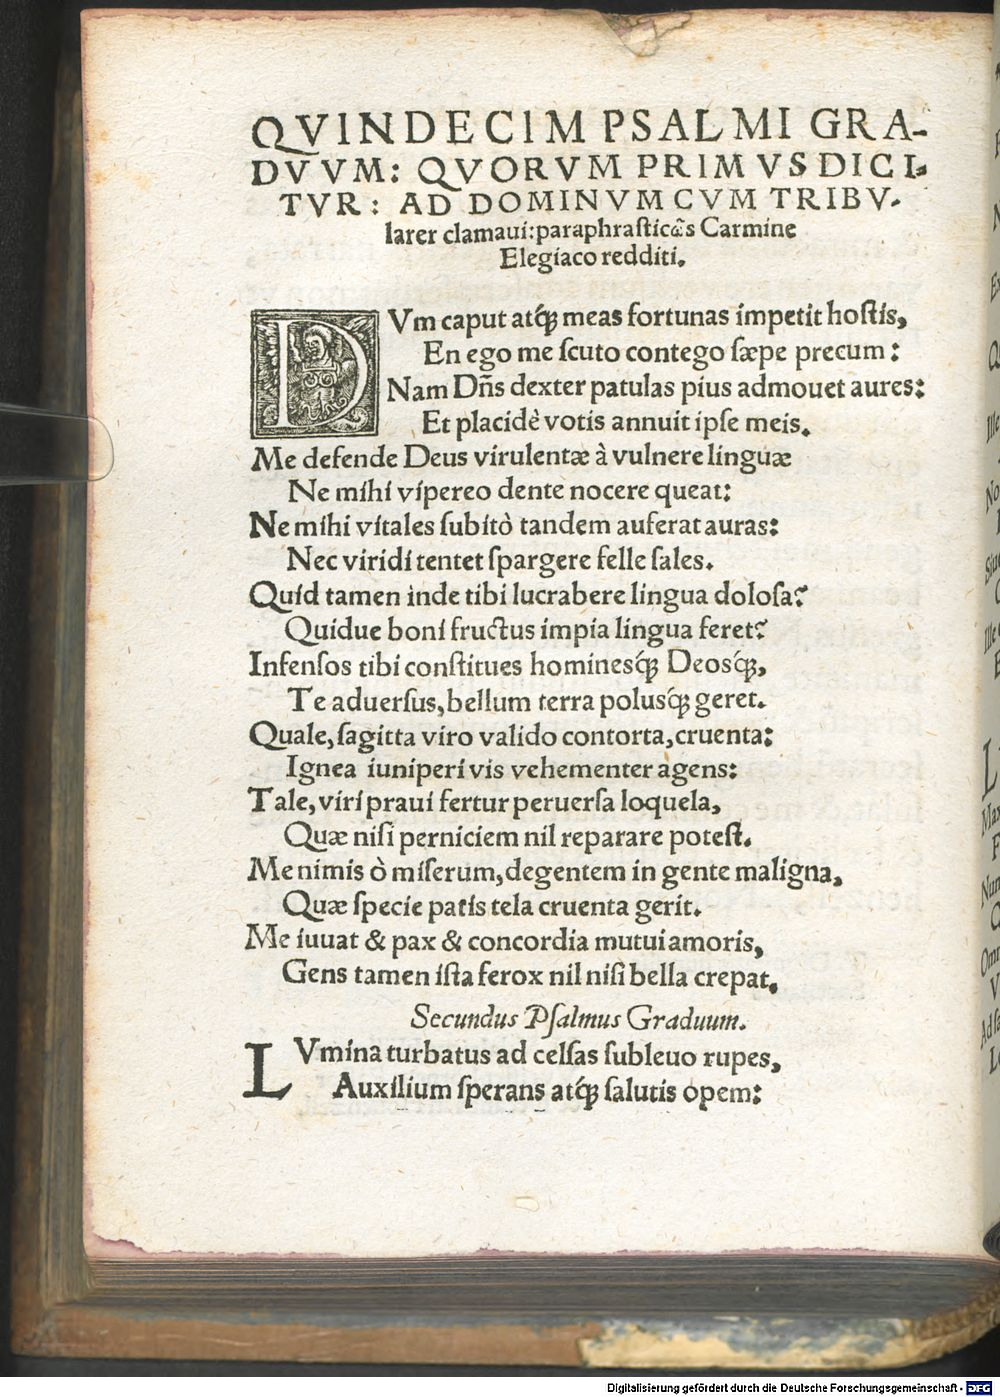 QVINDECIM PSALMI GRA-
DVVM: QVORVM PRIMVS DICI-
TVR: AD DOMINVM CVM TRIBV-
larer clamaui: paraphrasticῶs Carmine
Elegiaco redditi.
DVm caput atq́ꝫ meas fortunas impetit hostis,
En ego me scuto contego sæpe precum:
Nam Dñs dexter patulas pius admouet aures:
Et placidè votis annuit ipse meis.
Me defende Deus virulentæ à vulnere linguæ
Ne mihi vipereo dente nocere queat:
Ne mihi vitales subitò tandem auferat auras:
Nec viridi tentet spargere felle sales.
Quid tamen inde tibi lucrabere lingua dolosa?
Quidue boni fructus impia lingua feret?
Infensos tibi constitues hominesq́ꝫ Deosq́ꝫ,
Te aduersus, bellum terra polusq́ꝫ geret.
Quale, sagitta viro valido contorta, cruenta:
Ignea iuniperi vis vehementer agens:
Tale, viri praui fertur peruersa loquela,
Quæ nisi perniciem nil reparare potest.
Me nimis ò miserum, degentem in gente maligna,
Quæ specie patis tela cruenta gerit.
Me iuuat & pax & concordia mutui amoris,
Gens tamen ista ferox nil nisi bella crepat.
Secundus Psalmus Graduum.
LVmina turbatus ad celsas subleuo rupes,
Auxilium sperans atq́ꝫ salutis opem:
Digitalisierung gefördert durch die Deutsche Forschungsgemeinschaft - DFG